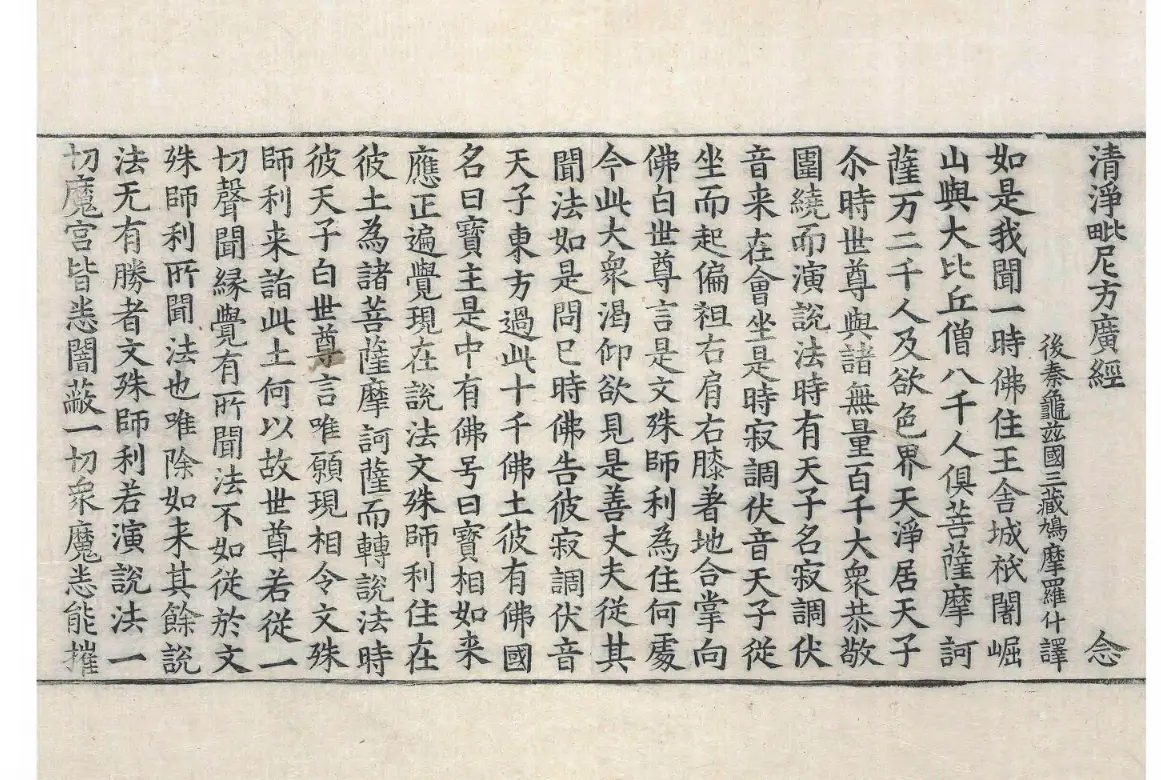 清淨毗尼方廣經　念
後秦龜茲國三藏鳩摩羅什譯
如是我聞一時佛住王舍城祇闍崛
山與大比丘僧八千人俱菩薩摩訶
薩万二千人及欲色界天淨居天子
尒時世尊與諸無量百千大衆恭敬
圍繞而演說法時有天子名寂調伏
音来在會坐是時寂調伏音天子從
坐而起偏袒右肩右膝著地合掌向
佛白世尊言是文殊師利為住何處
今此大衆渴仰欲見是善丈夫從其
聞法如是問已時佛告彼寂調伏音
天子東方過此十千佛土彼有佛國
名曰寶主是中有佛号曰寶相如来
應正遍覺現在說法文殊師利住在
彼土為諸菩薩摩訶薩而轉說法時
彼天子白世尊言唯願現相令文殊
師利来詣此土何以故世尊若從一
切聲聞緣覺有所聞法不如從於文
殊師利所聞法也唯除如来其餘說
法无有勝者文殊師利若演說法一
切魔宫皆悉闇蔽一切衆魔悉能摧